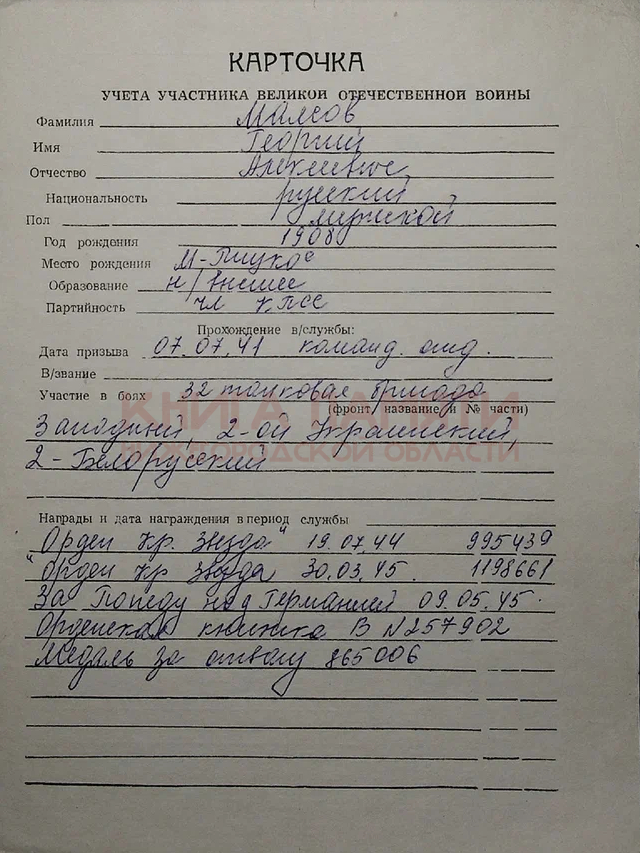 КАРТОЧКА
УЧЕТА УЧАСТНИКА ВЕЛИКОЙ ОТЕЧЕСТВЕННОЙ ВОЙНЫ
Фамилия
Имя Георгий
Отчество Алексеевич
Национальность русский
Пол мужской
Год рождения 1908
Место рождения М-Пицкое
Образование н/высшее
Партийность чл КПСС
Прохождение в/службы:
Дата призыва 07.07.41 команд. отд.
В/звание
Участие в боях 32 танковая бригада
(фронт, название и № части)
Западный, 2-ой Украинский,
2-Белорусский
КНИГА ПАМЯТИ
НИЖЕГОРОДСКОЙ ОБЛАСТИ
Награды и дата награждения в период службы
Орден Кр. Звезда" 19.07.44 995439
"Орден Кр Звезда 30.03.45. 1198661
За Победу над Германией 09.05.45.
Орденская книжка В N257902
Медаль за отвагу 865006